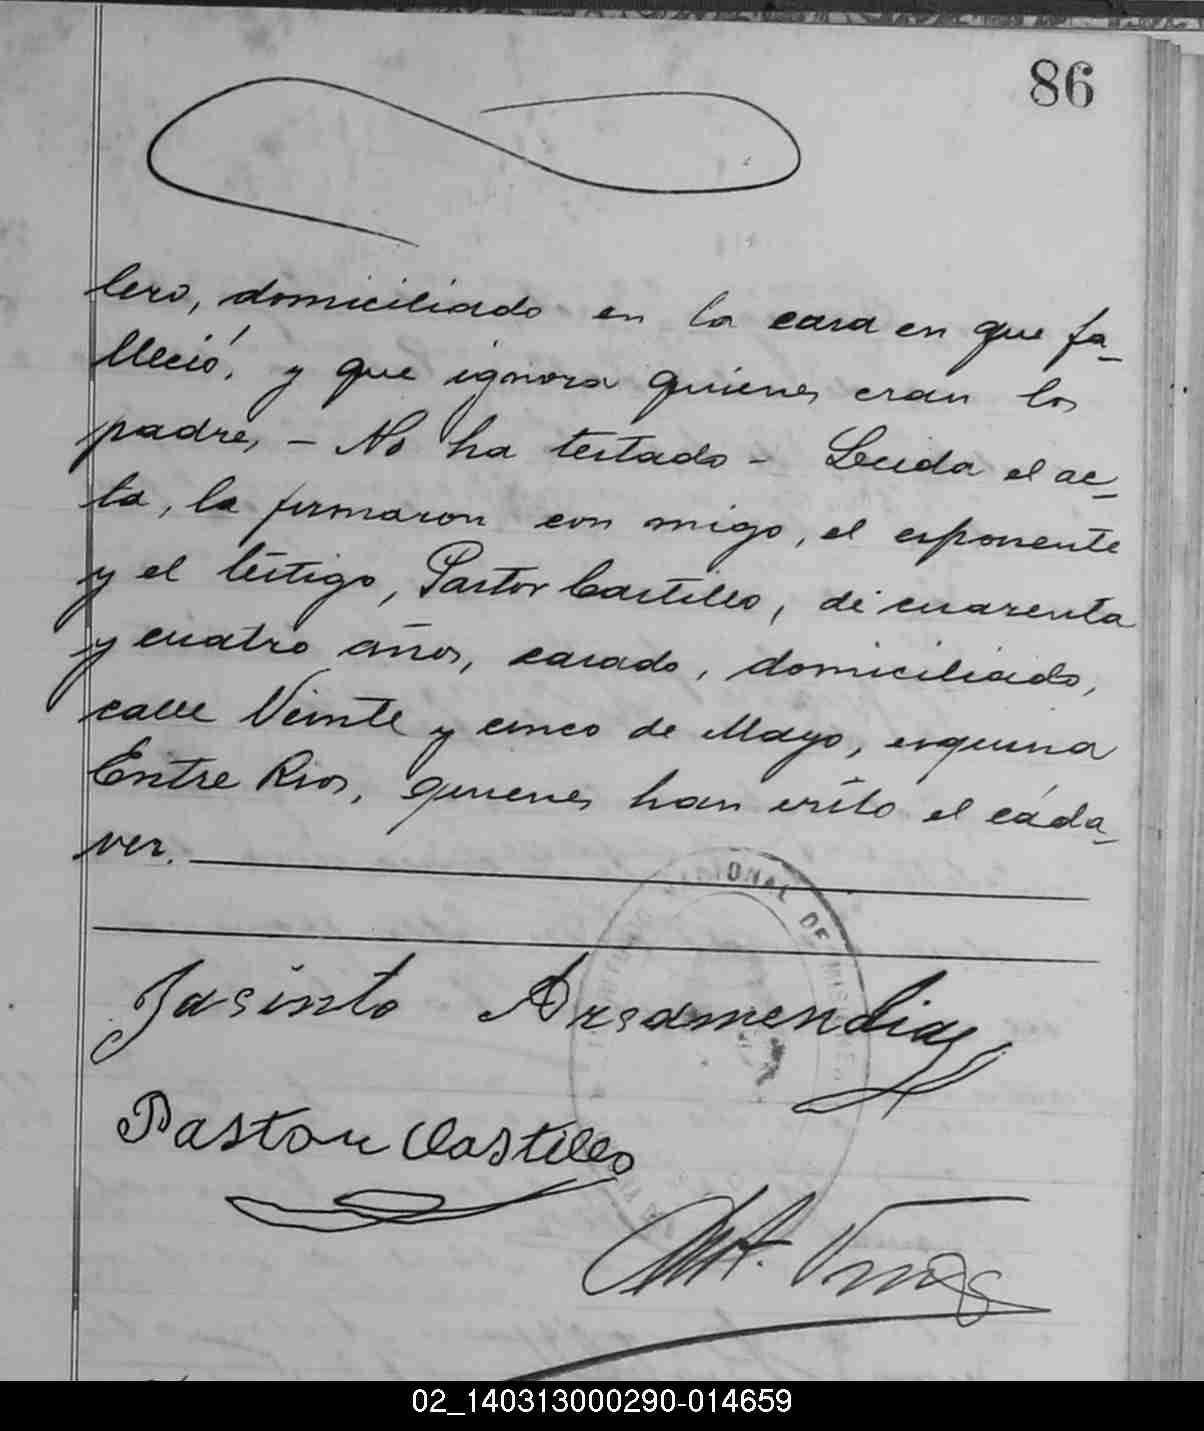 86
lero, domiciliado en la casa en que fa-
lleció, y que ignora quienes eran los
padres, - No ha testado - Leida el ac-
ta, la firmaron con migo, el esponente
y el testigo, Pastor Castillo, de cuarenta
y cuatro años, casado, domiciliado,
calle Veinte y cinco de Mayo, esquina
Entre Rios, quienes han visto el cáda-
ver.
Jasinto Aresamendia
Pastor Castillo
NACIONAL DE MISIONES
02_140313000290-014659